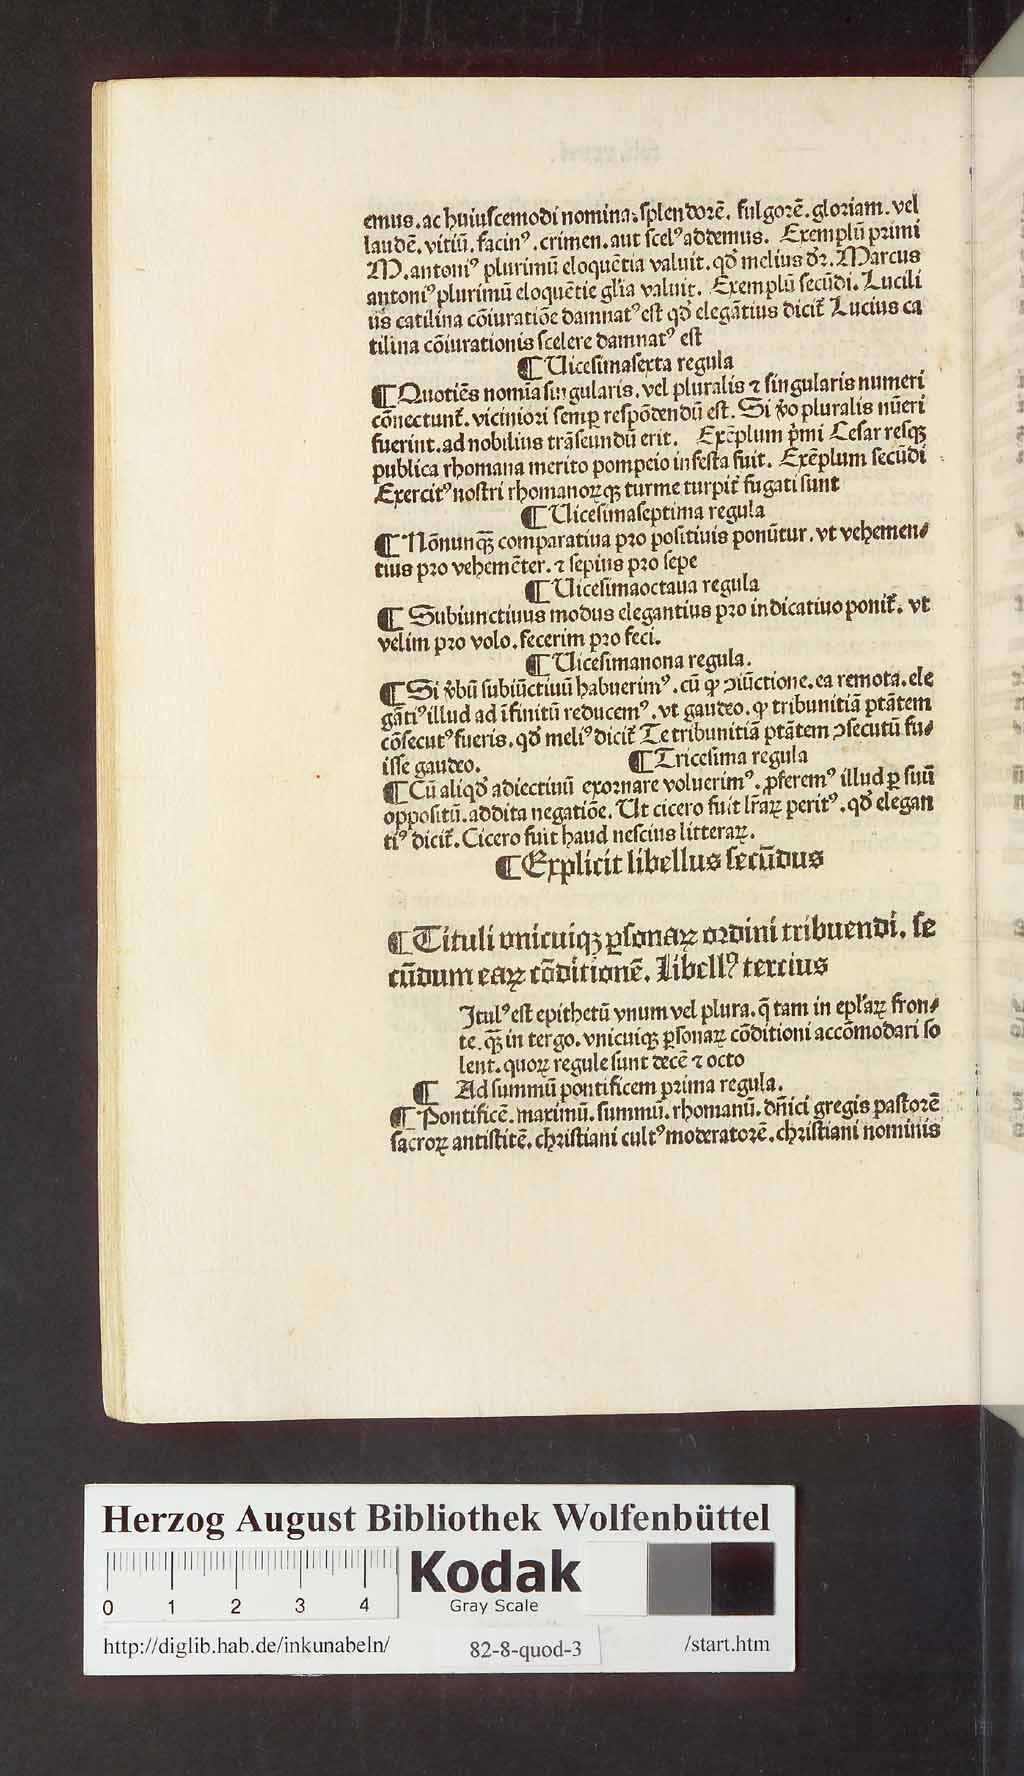 emus. ac huiuscemodi nomina: splendorē. fulgorē. gloriam. vel
laudē. vitiū. facinꝰ. crimen. aut scelꝰ addemus. Exemplū primi
M. antoniꝰ plurimū eloquētia valuit. qđ melius dr̄. Marcus
antoniꝰ plurimū eloquētie gl'ia valuit. Exemplū secūdi. Lucili
us catilina cōiuratiōe damnatꝰ est qđ elegātius dicit̄ Lucius ca
tilina cōiurationis scelere damnatꝰ est
¶ Uicesimasexta regula
¶ Quotiēs nomīa singularis. vel pluralis ⁊ singularis numeri
cōnectunt̄. viciniori semꝑ respōdendū est. Si v̄o pluralis nūeri
fuerint. ad nobilius trāseundū erit. Exēplum p̄mi Cesar resqꝫ
publica rhomana merito pompeio infesta fuit. Exēplum secūdi
Exercitꝰ nostri rhomanoꝝqꝫ turme turpit̄ fugati sunt
¶ Uicesimaseptima regula
¶ Nōnunqꝫ̄ comparatiua pro positiuis ponūtur. vt vehemen⸗
tius pro vehemēter. ⁊ sepius pro sepe
¶ Uicesimaoctaua regula
¶ Subiunctiuus modus elegantius pro indicatiuo ponit̄. vt
velim pro volo. fecerim pro feci.
¶ Uicesimanona regula.
¶ Si v̄bū subiūctiuū habuerimꝰ. cū ꝙ ꝯiūctione. ea remota. ele
gātiꝰ illud ad īfinitū reducemꝰ. vt gaudeo. ꝙ tribunitiā ptātem
cōsecutꝰ fueris. qđ meliꝰ dicit̄ Te tribunitiā ptātem ꝯsecutū fu⸗
isse gaudeo. ¶ Tricesima regula
¶ Cū aliqđ adiectiuū exornare voluerimꝰ. ꝓferemꝰ illud ꝑ suū
oppositū. addita negatiōe. Ut cicero fuit lr̄aꝝ peritꝰ. qđ elegan
tiꝰ dicit̄. Cicero fuit haud nescius litteraꝝ.
¶ Explicit libellus secūdus
¶ Tituli vnicuiqꝫ ꝑsonaꝝ ordini tribuendi. se
cūdum eaꝝ cōditionē. Libellꝰ tercius
Itulꝰ est epithetū vnum vel plura. q̄ tam in epl'aꝝ fron⸗
te. qꝫ̄ in tergo. vnicuiqꝫ ꝑsonaꝝ cōditioni accōmodari so
lent. quoꝝ regule sunt decē ⁊ octo
¶ Ad summū pontificem prima regula.
¶ Pontificē. maximū. summū. rhomanū. dn̄ici gregis pastorē
sacroꝝ antistitē. christiani cultꝰ moderatorē. christiani nominis
Herzog August Bibliothek Wolfenbüttel
Kodak
Gray Scale
0 1 2 3 4
http://diglib.hab.de/inkunabeln/ 82-8-quod-3 /start.htm